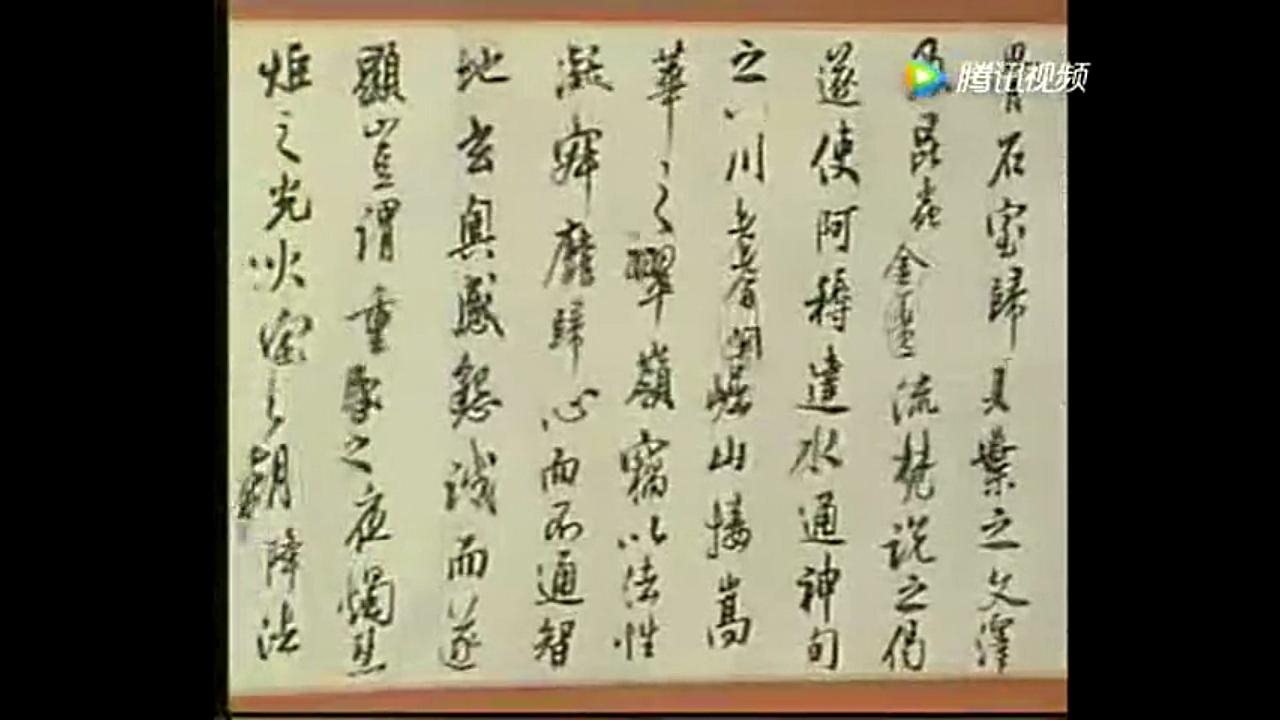 胄石室歸貝葉之文澤
及昆蟲金匱流梵說之偈
遂使阿耨達水通神甸
之八川耆闍崛山接嵩
華之翠嶺竊以法性
凝寂靡歸心而不通智
地玄奧感懇誠而遂
顯豈謂重昏之夜燭慧
炬之光火宅之朝降法
腾讯视频